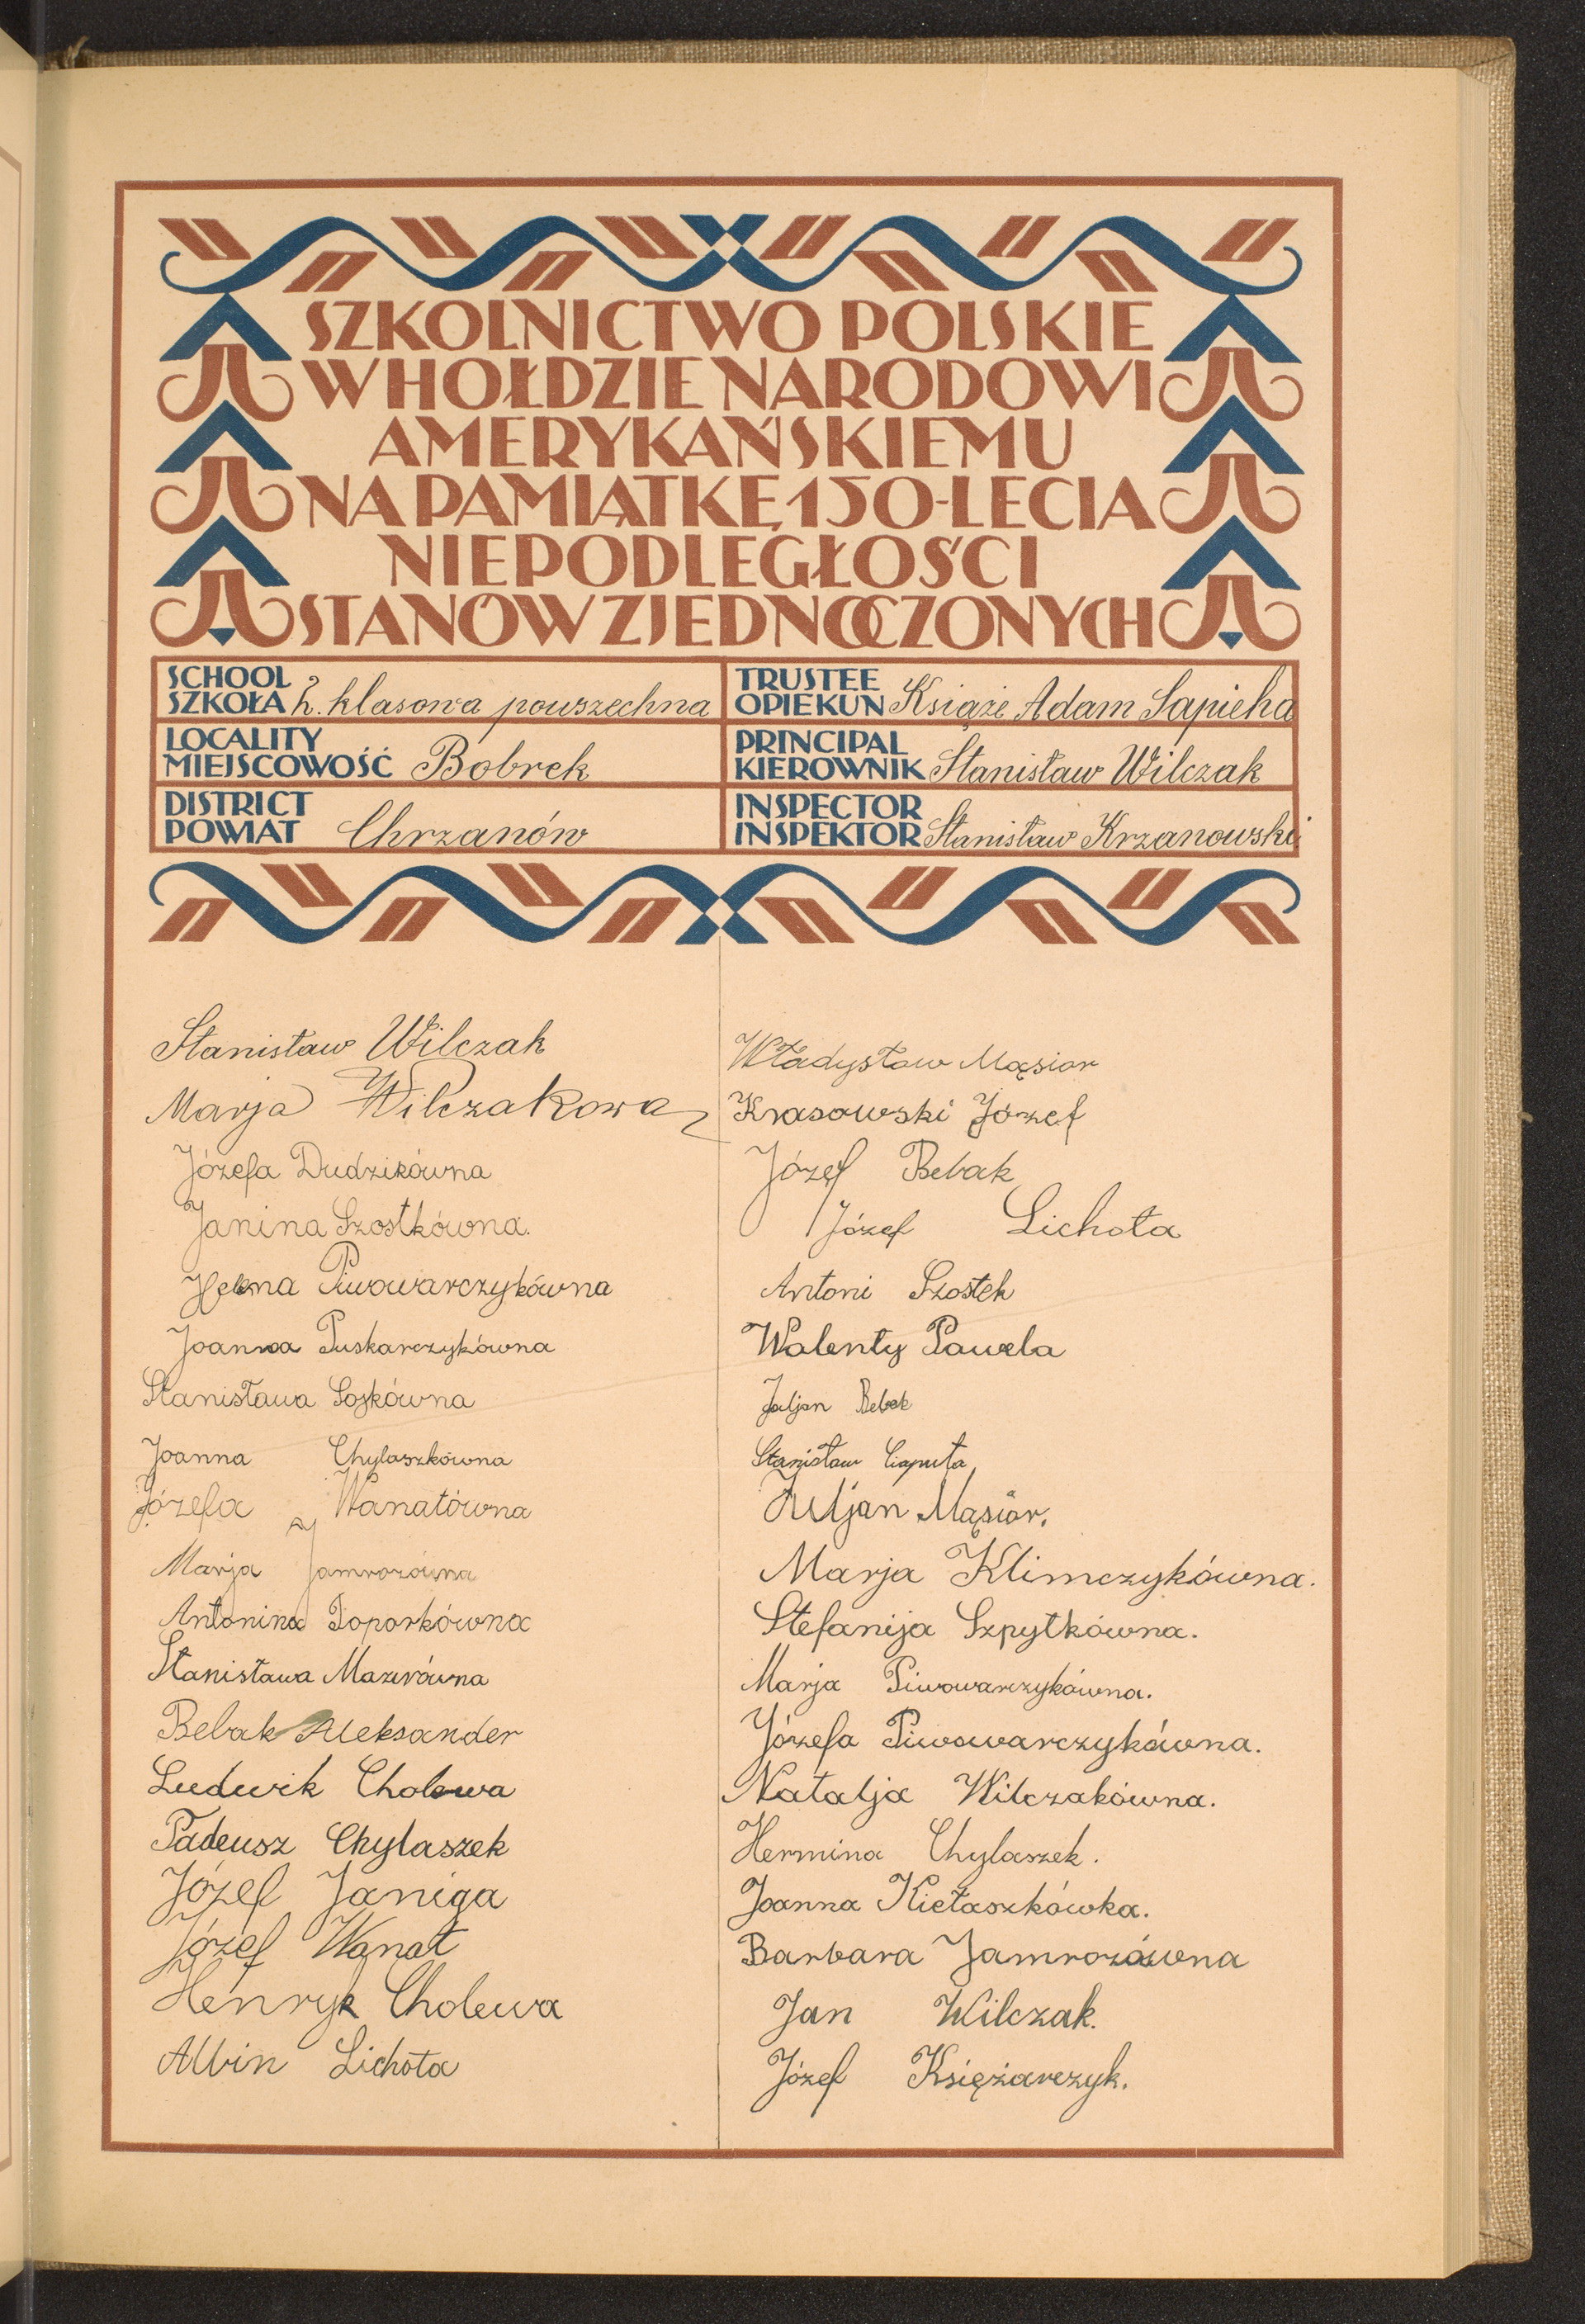 SZKOLNICTWO POLSKIE
W HOŁDZIE NARODOWI
AMERYKAŃSKIEMU
NA PAMIĄTKĘ 150-LECIA
NIEPODLEGŁOŚCI
STANÓW ZJEDNOCZONYCH
SCHOOL
SZKOŁA 2. klasowa powszechna
TRUSTEE
OPIEKUN Książe Adam Sapieha
LOCALITY
MIEJSCOWOŚĆ Bobrek
PRINCIPAL
KIEROWNIK Stanisław Wilczak
DISTRICT
POWIAT Chrzanów
INSPECTOR
INSPEKTOR Stanisław Krzanowski
Stanisław Wilczak
Marja Wilczakowa
Józefa Dudzikówna
Janina Szostkówna.
Helena Piwowarczykówna
Joanna Puskarczykówna
Stanisława Soskówna
Joanna Chylaszkówna
Józefa Wanatówna
Marja Jamrozówna
Antonina Toporkówna
Stanisława Mazurówna
Bebak Aleksander
Ludwik Cholewa
Tadeusz Chylaszek
Józef Janiga
Józef Wanat
Henryk Cholewa
Albin Lichota
Władysław Mąsior
Krasowski Józef
Józef Bebak
Józef Lichota
Antoni Szostek
Walenty Pawela
Juljan Bebak
Stanisław Ciaputa
Juljan Mąsior.
Marja Klimczykówna.
Stefanija Szpytkówna.
Marja Piwowarczykówna.
Józefa Piwowarczykówna.
Natalja Wilczakówna.
Hermina Chylaszek.
Joanna Kiełaszkówka.
Barbara Jamrozówna
Jan Wilczak.
Józef Księżarczyk.